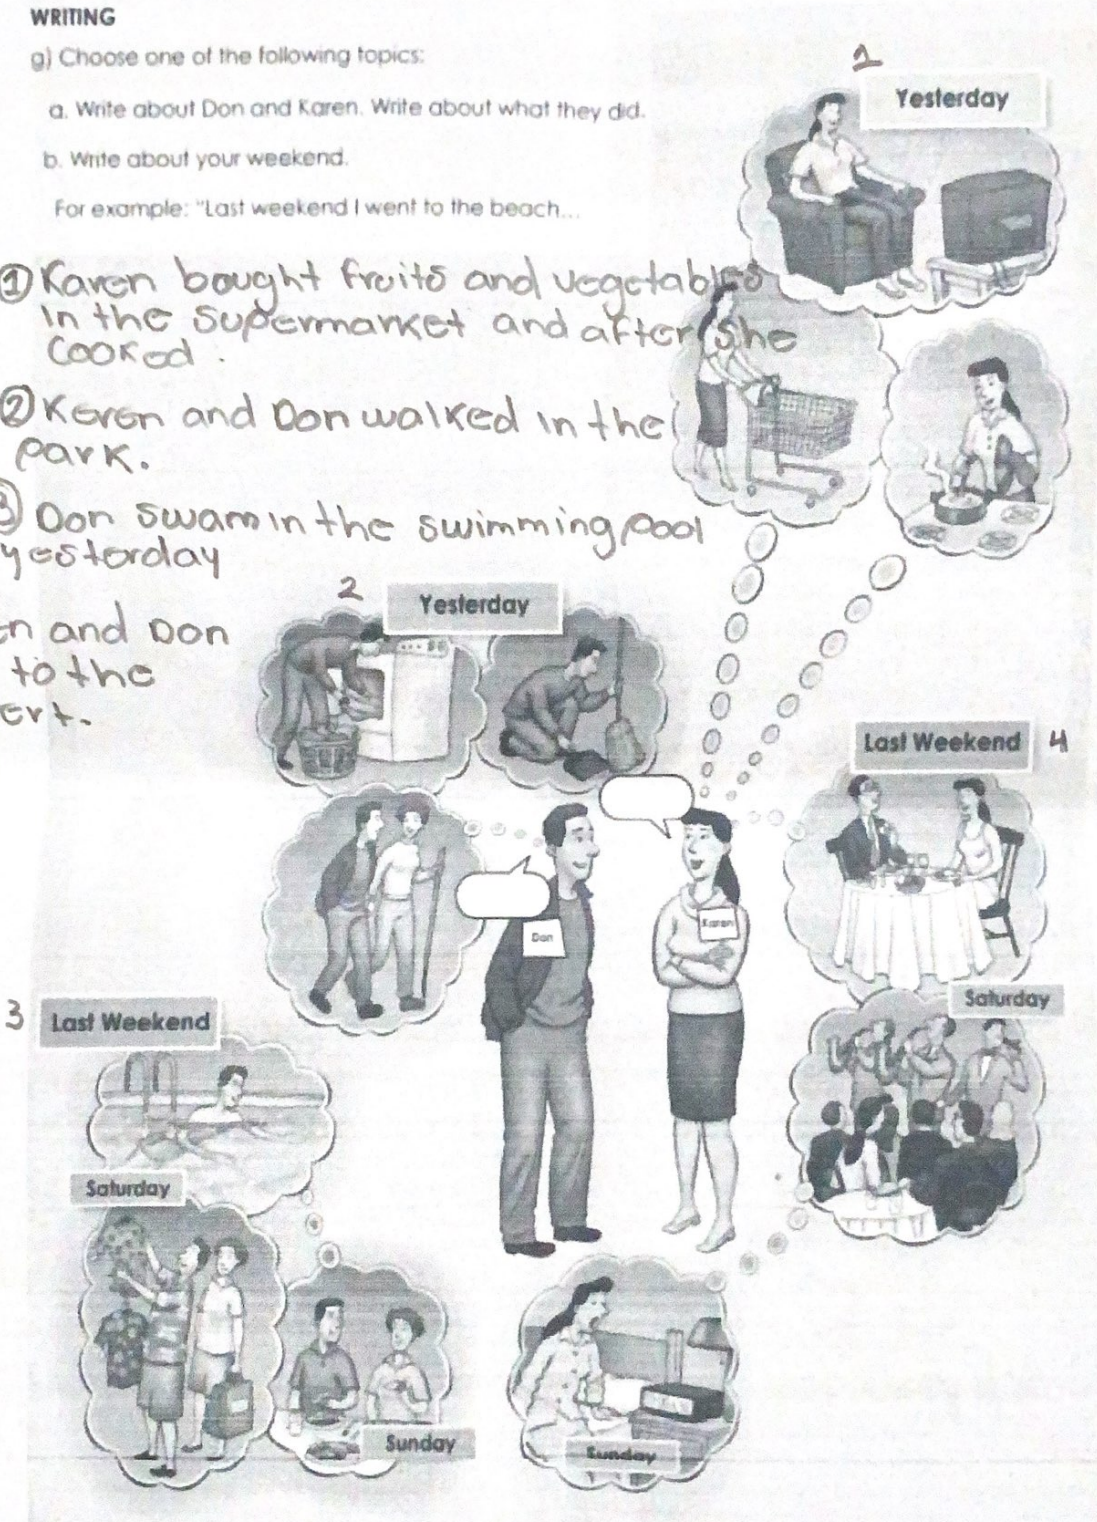 WRITING
g) Choose one of the following topics:
a. Write about Don and Karen. Write about what they did.
b. Write about your weekend.
For example: "Last weekend I went to the beach...
1
Yesterday
① Karen bought fruits and vegetables
in the supermarket and after she
cooked.
② Keren and Don walked in the
park.
3 Don swam in the swimming pool
yesterday
en and Don
to the
ert.
2
Yesterday
Last Weekend 4
Don
Karen
Saturday
3 Last Weekend
Saturday
Sunday
Sunday